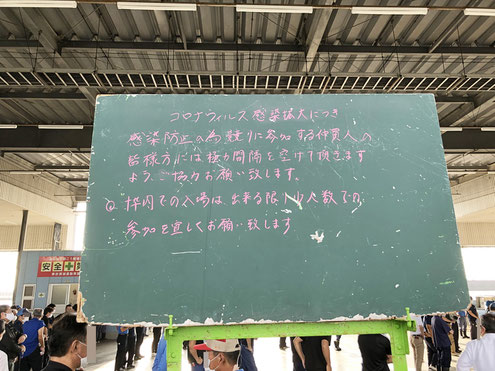 コロナウィルス感染拡大につき
感染防止の為競りに参加する仲買人の
皆様方には極力間隔を空けて頂きます
よう、ご協力お願い致します。
場内での入場は、出来る限り少人数での
参加を宜しくお願い致します
安全